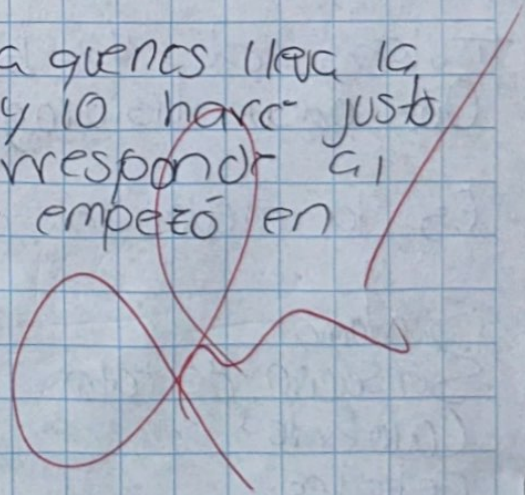 a quenes lleva la
y lo hare justo
rresponde al
empezó en